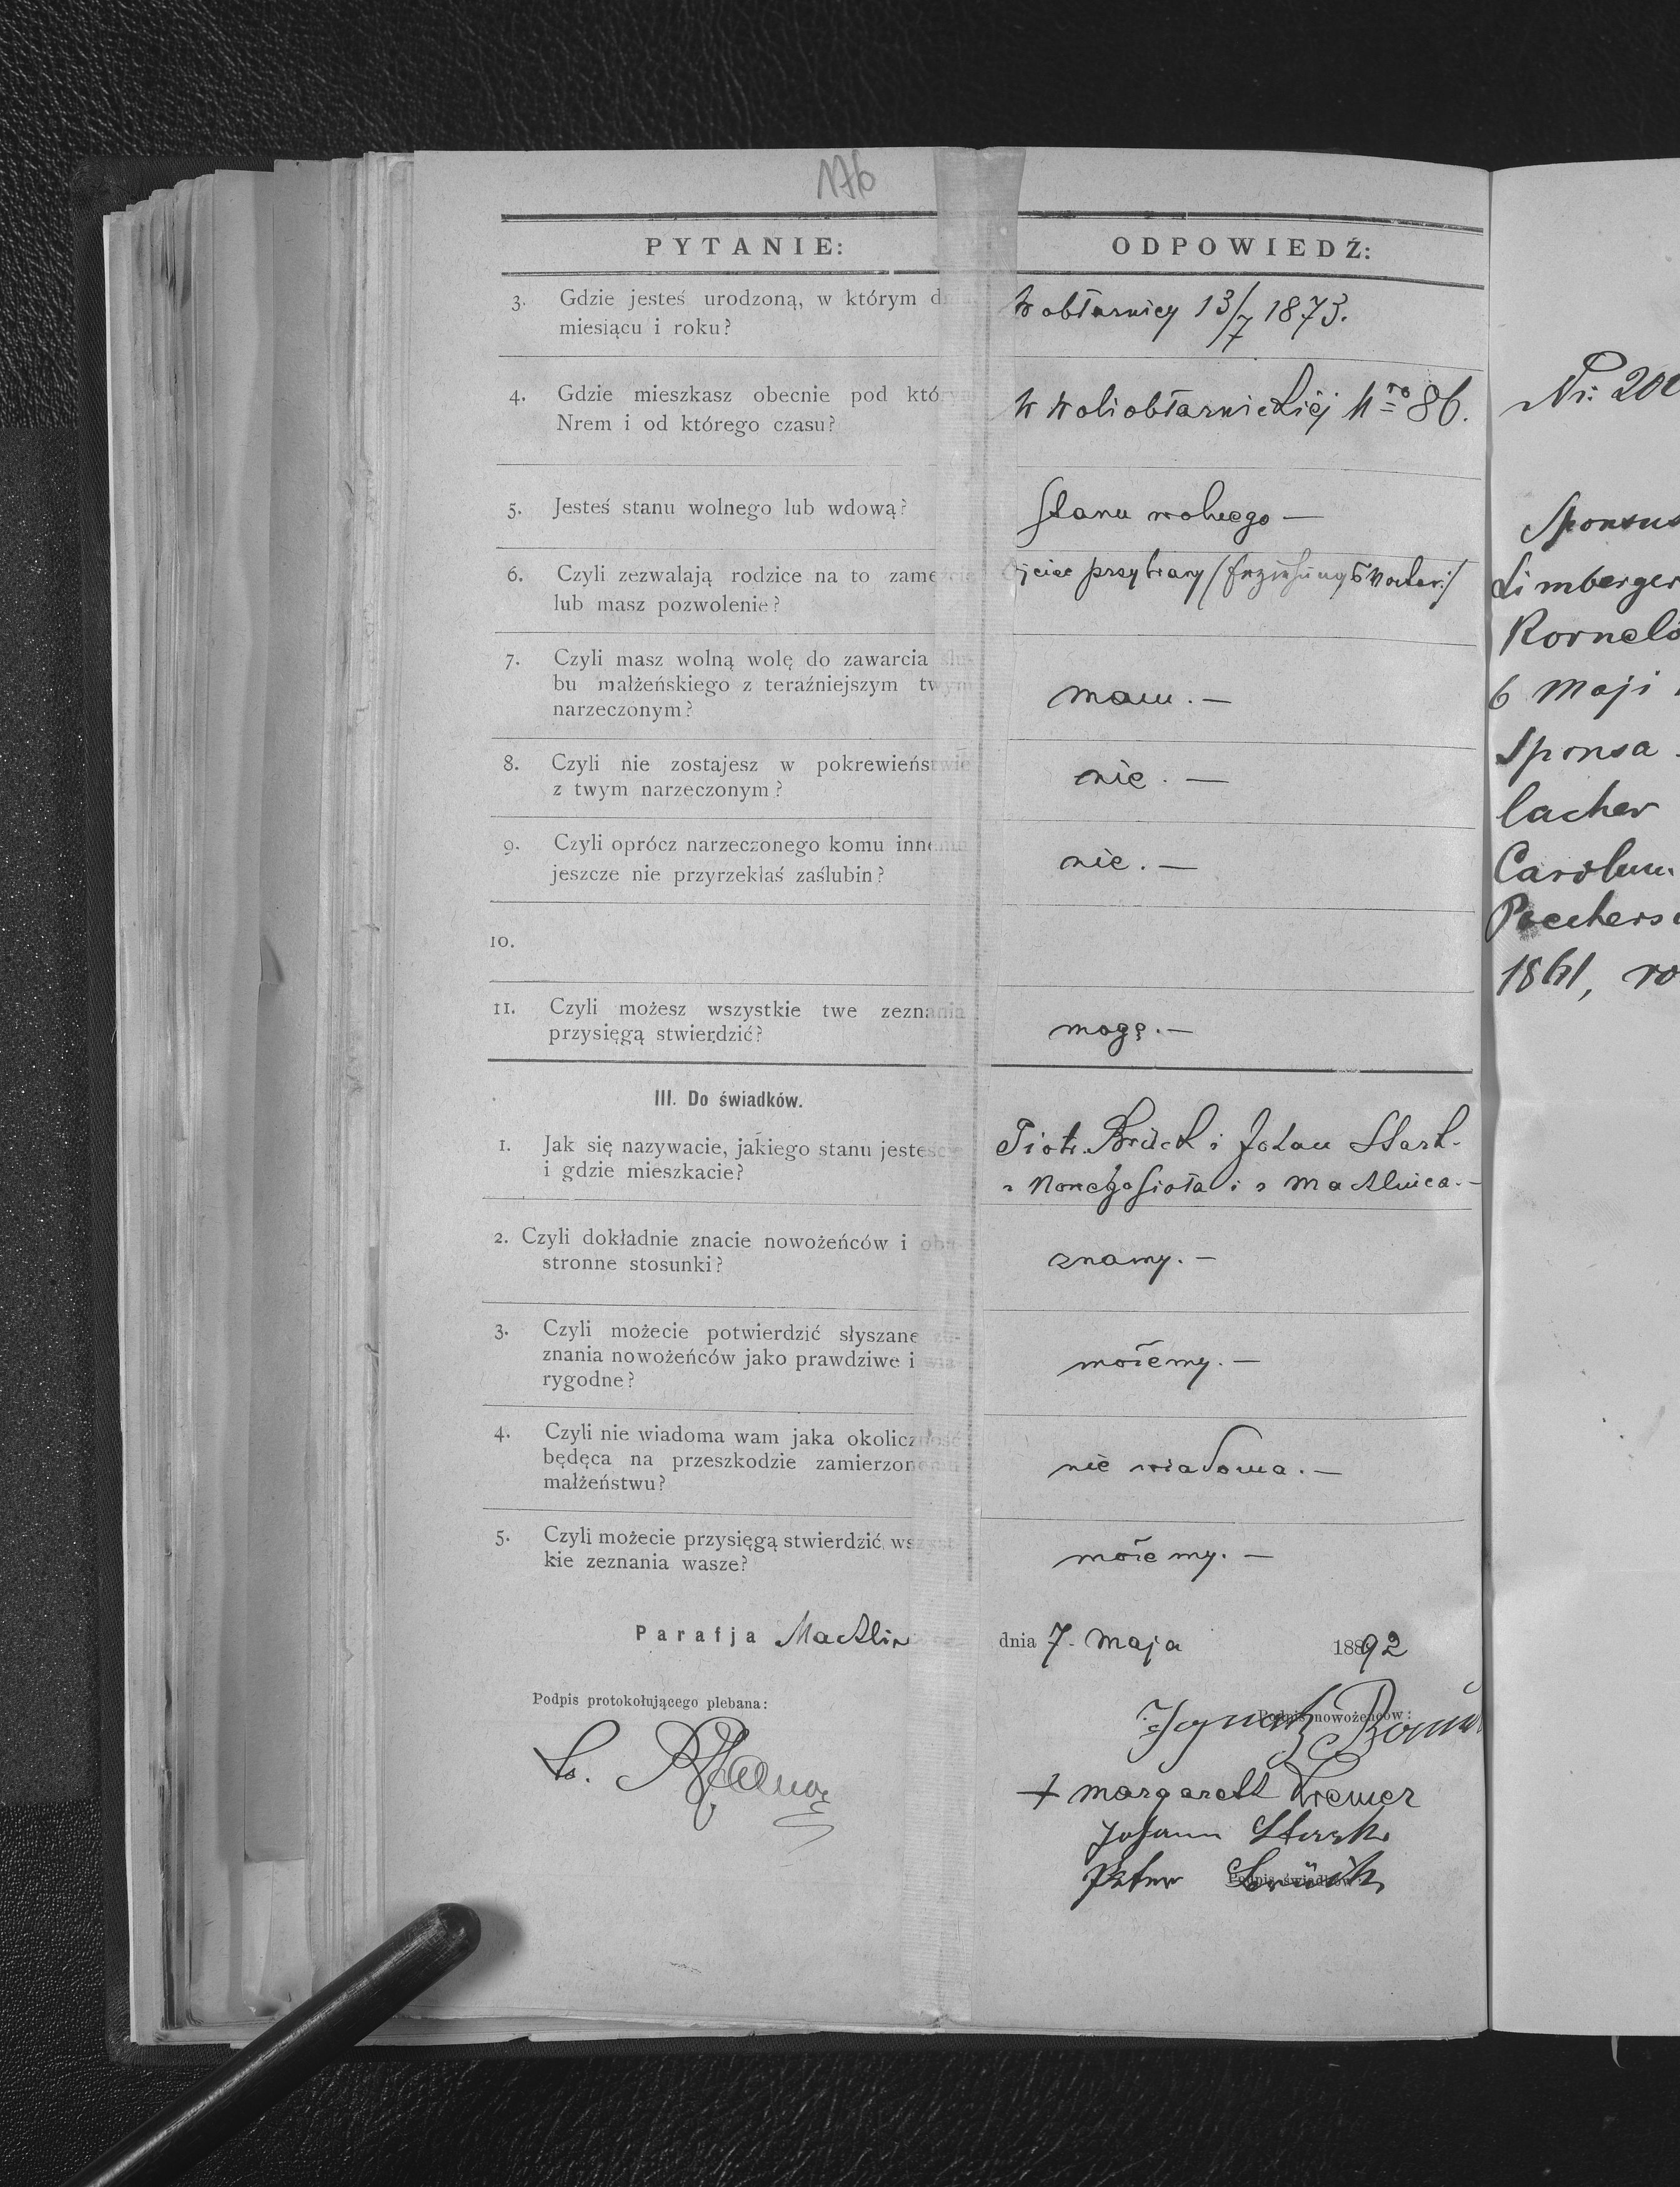 176
PYTANIE:
ODPOWIEDŹ:
3. Gdzie jesteś urodzoną, w którym d
miesiącu i roku?
W obłarnicy 13/7 1873.
4. Gdzie mieszkasz obecnie pod któ
Nrem i od którego czasu?
W Woli obłarnickiéj Nro 86.
5. Jesteś stanu wolnego lub wdową?
Stanu wolnego —
6. Czyli zezwalają rodzice na to zamę
lub masz pozwolenie?
Ojciec przybrany
7. Czyli masz wolną wolę do zawarcia ślu-
bu małżeńskiego z teraźniejszym twym
narzeczonym?
mam. —
8. Czyli nie zostajesz w pokrewieństwie
z twym narzeczonym?
nie. —
9. Czyli oprócz narzeczonego komu innemu
jeszcze nie przyrzekłaś zaślubin?
nie. —
10.
11. Czyli możesz wszystkie twe zeznania
przysięgą stwierdzić?
mogę. —
III. Do świadków.
1. Jak się nazywacie, jakiego stanu jesteście
i gdzie mieszkacie?
Piotr Brück i Johan Stark
z i z
2. Czyli dokładnie znacie nowożeńców i obu-
stronne stosunki?
znamy. —
3. Czyli możecie potwierdzić słyszane ze-
znania nowożeńców jako prawdziwe i wia
rygodne?
możemy. —
4. Czyli nie wiadoma wam jaka okoliczność
będęca na przeszkodzie zamierzonemu
małżeństwu?
nie wiadoma. —
5. Czyli możecie przysięgą stwierdzić wszyst
kie zeznania wasze?
możemy. —
Parafja Machlin
dnia 7. maja 1892
Podpis protokołującego plebana:
Podpis nowożeńców:
Ignatz
+ Margarett Kremer
Johann Stark
Peter Brück
Podpis świadków:
Nr: 200
Sponsus
Limberger
Kornelo
6 Maji
Sponsa
lacher
Carolum
1861, ro